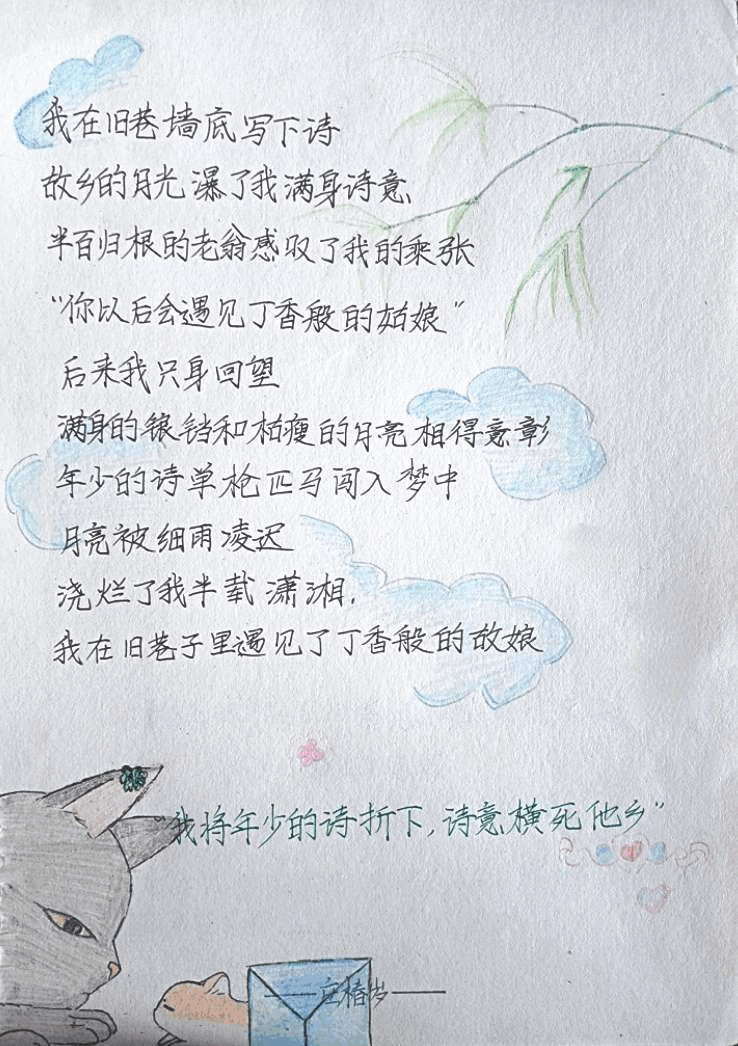 我在旧巷墙底写下诗
故乡的月光瀑了我满身诗意
半百归根的老翁感叹了我的乘张
“你以后会遇见丁香般的姑娘”
后来我只身回望
满身的锒铛和枯瘦的月亮相得意彰
年少的诗单枪匹马闯入梦中
月亮被细雨凌迟
浇烂了我半载潇湘.
我在旧巷子里遇见了丁香般的故娘
“我将年少的诗折下,诗意横死他乡”
——庄椿岁——